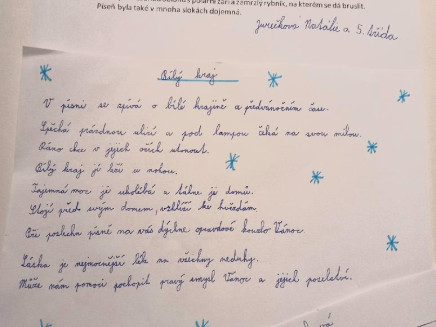 polární září a zamrzlý rybník, na kterém se dá bruslit.
Píseň byla také v mnoha slokách dojemná.
Jurečková Natálie a 5. třída
Bílý kraj
V písni se zpívá o bílé krajině a předvánočním čase.
Spěchá prázdnou ulicí a pod lampou čeká na svou milou.
Ráno chce v jejích očích utonout.
Bílý kraj jí leží u nohou.
Tajemná moc je ukolébá a táhne je domů.
Stojí před svým domem, vzhlíží ke hvězdám.
Při poslechu písně na vás dýchne opravdové kouzlo Vánoc.
Láska je nejmocnější lék na všechny neduhy.
Může nám pomoci pochopit pravý smysl Vánoc a jejich poselství.